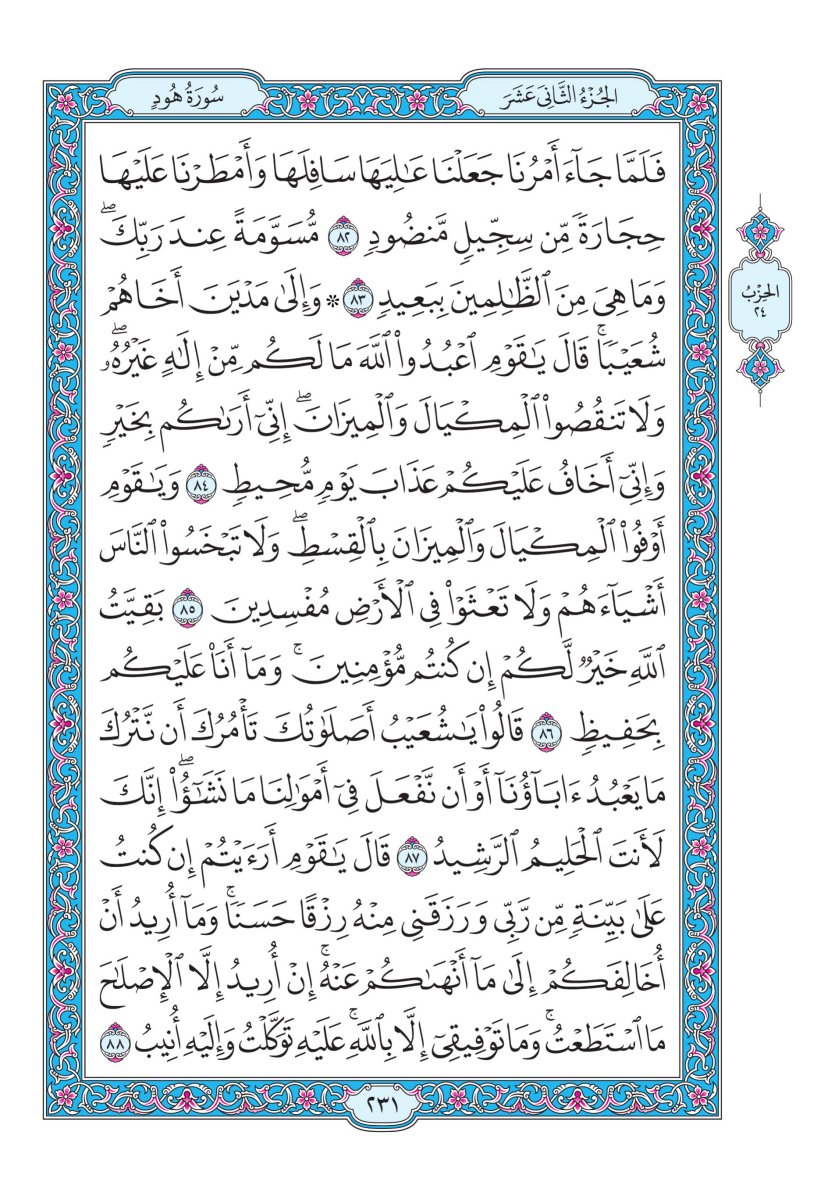 الجُزْءُ الثَّانِى عَشَرَ
سُورَةُ هُودٍ
فَلَمَّا جَآءَ أَمْرُنَا جَعَلْنَا عَٰلِيَهَا سَافِلَهَا وَأَمْطَرْنَا عَلَيْهَا
حِجَارَةً مِّن سِجِّيلٍ مَّنضُودٍ ٨٢ مُّسَوَّمَةً عِندَ رَبِّكَۖ
وَمَا هِىَ مِنَ ٱلظَّٰلِمِينَ بِبَعِيدٍ ٨٣ * وَإِلَىٰ مَدْيَنَ أَخَاهُمْ
شُعَيْبًاۚ قَالَ يَٰقَوْمِ ٱعْبُدُوا۟ ٱللَّهَ مَا لَكُم مِّنْ إِلَٰهٍ غَيْرُهُۥۖ
وَلَا تَنقُصُوا۟ ٱلْمِكْيَالَ وَٱلْمِيزَانَۖ إِنِّىٓ أَرَىٰكُم بِخَيْرٍ
وَإِنِّىٓ أَخَافُ عَلَيْكُمْ عَذَابَ يَوْمٍ مُّحِيطٍ ٨٤ وَيَٰقَوْمِ
أَوْفُوا۟ ٱلْمِكْيَالَ وَٱلْمِيزَانَ بِٱلْقِسْطِۖ وَلَا تَبْخَسُوا۟ ٱلنَّاسَ
أَشْيَآءَهُمْ وَلَا تَعْثَوْا۟ فِى ٱلْأَرْضِ مُفْسِدِينَ ٨٥ بَقِيَّتُ
ٱللَّهِ خَيْرٌ لَّكُمْ إِن كُنتُم مُّؤْمِنِينَۚ وَمَآ أَنَا۠ عَلَيْكُم
بِحَفِيظٍ ٨٦ قَالُوا۟ يَٰشُعَيْبُ أَصَلَوٰتُكَ تَأْمُرُكَ أَن نَّتْرُكَ
مَا يَعْبُدُ ءَابَآؤُنَآ أَوْ أَن نَّفْعَلَ فِىٓ أَمْوَٰلِنَا مَا نَشَٰٓؤُا۟ۖ إِنَّكَ
لَأَنتَ ٱلْحَلِيمُ ٱلرَّشِيدُ ٨٧ قَالَ يَٰقَوْمِ أَرَءَيْتُمْ إِن كُنتُ
عَلَىٰ بَيِّنَةٍ مِّن رَّبِّى وَرَزَقَنِى مِنْهُ رِزْقًا حَسَنًاۚ وَمَآ أُرِيدُ أَنْ
أُخَالِفَكُمْ إِلَىٰ مَآ أَنْهَىٰكُمْ عَنْهُۚ إِنْ أُرِيدُ إِلَّا ٱلْإِصْلَٰحَ
مَا ٱسْتَطَعْتُۚ وَمَا تَوْفِيقِىٓ إِلَّا بِٱللَّهِۚ عَلَيْهِ تَوَكَّلْتُ وَإِلَيْهِ أُنِيبُ ٨٨
الحِزْبُ
٢٤
٢٣١